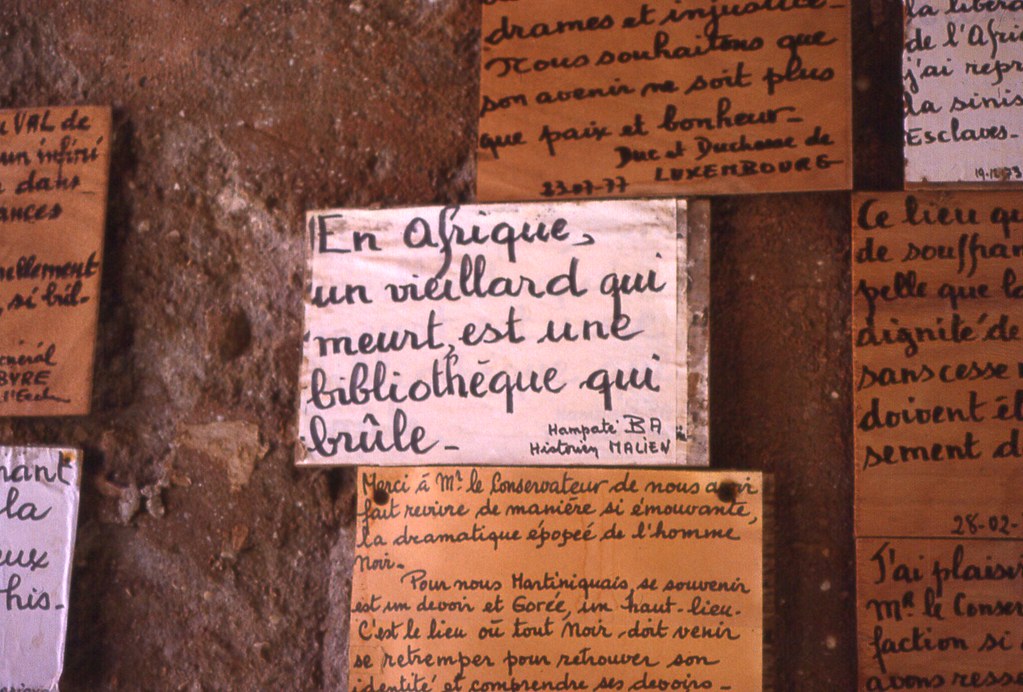 drames et injustice-
Nous souhaitons que
son avenir ne soit plus
que paix et bonheur-
Duc et Duchesse de
LUXEMBOURG
23-07-77
la libéra
de l'Afri
j'ai repr
la sinis
Esclaves-
19-12-73
VAL de
un infini
dans
ances
nellement
, si bil-
énéral
BVRE
En Afrique,
un vieillard qui
meurt, est une
bibliothèque qui
brûle-
Hampaté BA
Historien MALIEN
Ce lieu qu
de souffran
pelle que la
dignité de
sans cesse
doivent êt
sement d
28-02-
nant
la
eux
his-
Merci à Mr le Conservateur de nous avoir
fait revivre de manière si émouvante,
la dramatique épopée de l'homme
Noir-
Pour nous Martiniquais, se souvenir
est un devoir et Gorée, un haut-lieu-
C'est le lieu où tout Noir doit venir
se retremper pour retrouver son
identité et comprendre ses devoirs-
J'ai plaisi
Mr le Conser
faction si
avons resse